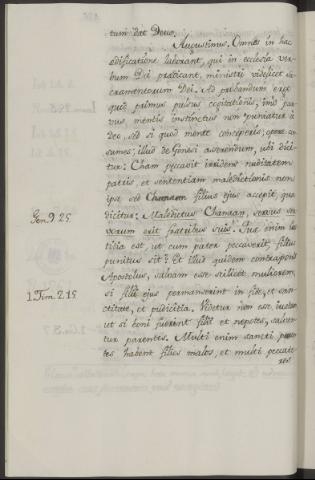 tum dat Deus.
Augustinus. Omnes in hac
ædificatione laborant, qui in ecclesia ver-
bum Dei prædicant, ministri videlicet sa-
cramentorum Dei. Ad
quid primus pulsus cogitationis, imo par-
vus, mentis instinctus non puniatur a
deo, sed si quod mente conceperis, opere con-
sumes; illud de Genesi adverendum, ubi dici-
tur: Cham peccavit irridens nuditatem
patris, et sententiam maledictionis non
ipse sed Chanaan filius ejus accepit, qua
dicitur: Maledictus Chanaan, servus ser-
vorum erit fratribus suis. Quæ enim jus-
titia est, ut cum pater peccaverit, filius
punitus sit? Et illud quidem contraponis
Apostolus, salvam esse scilicet mulierem,
si filii ejus permanserint in fide, et sanc-
titate, et pudicitia. Videtur non esse
ut si boni fuerint filii et nepotes, salven-
tur parentes. Multi enim sancti paren-
tes habent filios malos, et multi peccato-
res
Gen. 9. 25.
1. Tim. 2. 15.